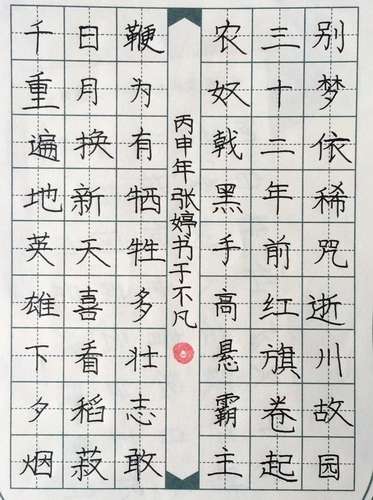 别梦依稀咒逝川故园
三十二年前红旗卷起
农奴戟黑手高悬霸主
丙申年张婷书于不凡
鞭为有牺牲多壮志敢
日月换新天喜看稻菽
千重遍地英雄下夕烟